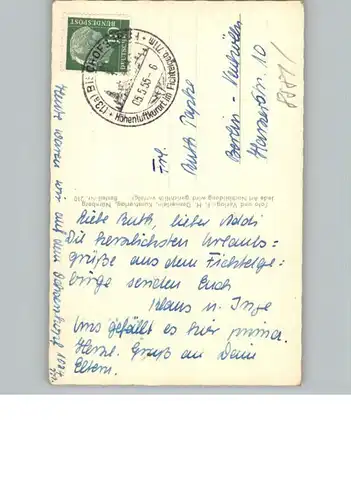 Liebe Ruth, lieber Addi
Die herzlichsten Urlaubs=
grüße aus dem Fichtelge=
birge senden Euch
Klaus u. Inge
Uns gefällt es hier prima.
Herzl. Gruß an Deine
Eltern.
Heute waren wir auf dem Ochsenkopf 1024
Frl.
Ruth
Berlin - Neukölln
10
DEUTSCHE
BUNDESPOST
10
(13a) BISCHOFSGRÜN
05.5.55-6
Höhenluftkurort im Fichtelgeb. 711m
Foto und Verlag: R. H. Kunstverlag, Nürnberg
Jede Art Nachbildung wird gerichtlich verfolgt